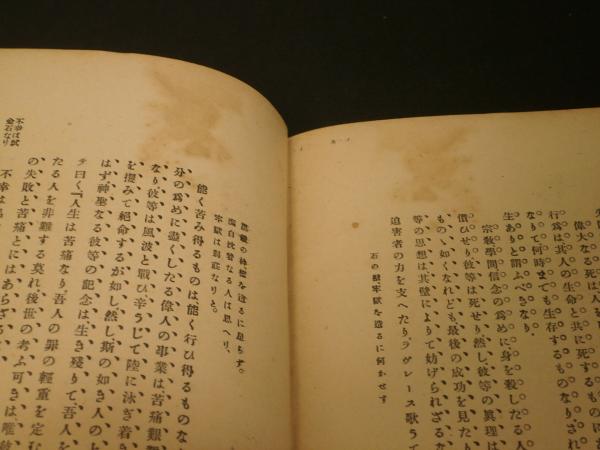 偉大なる死は人を
行爲は其人の生命と共に死するものに
なりて何時までも生存するものなり、され
生ありと謂ふべきなり
宗敎學問信念の爲めに身を殺したる人
償ひせり彼等は死せり然し彼等の眞理は
ものゝ如くなれども最後の成功を見たり
等の思想は其壁によりて妨げられざる
迫害者の力を支へたり、ラヴレース歌うて
石の壁牢獄を造るに何かせす
鐵の棒檻を造るに足らず、
潔白沈着なる人は思へり、
牢獄は別莊なりと。
能く苦み得るものは、能く行ひ得るものな
分の爲めに盡くしたる偉人の事業は苦痛艱
なり、彼等は風波と戰ひ辛うじて陸に泳ぎ着き
を摸みて絕命するが如し、然し斯の如き人の
はず、神聖なる彼等の記念は、生き殘りて、吾人を
テ曰く『人生は苦痛なり、吾人の罪の輕重を定む
たる人を非難する莫れ、後世の考ふ可きは唯彼
の失敗と苦痛とにはあらざる
不幸は
不幸は試
金石なり